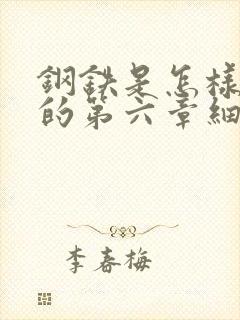 鋼鉄是怎樣
的第六章細
李春梅